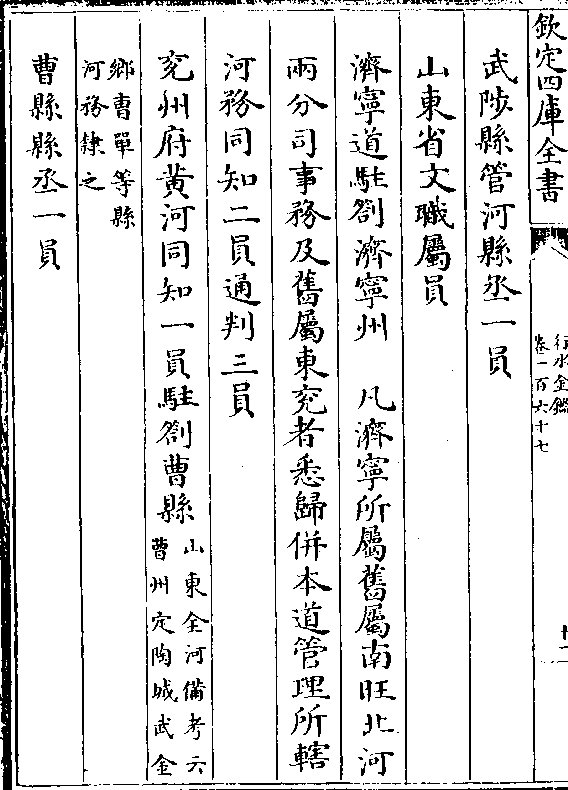 欽定四庫全書
行水金鑑
卷一百六十七
武陟縣管河縣丞一員
山東省文職屬員
濟寧道駐劄濟寧州　凡濟寧所屬舊屬南旺北河
兩分司事務及舊屬東兖者悉歸併本道管理所轄
河務同知二員通判三員
兖州府黄河同知一員駐劄曹縣
山東全河備考云
曹州定陶城武金
鄉曹單等縣
河務隸之
曹縣縣丞一員